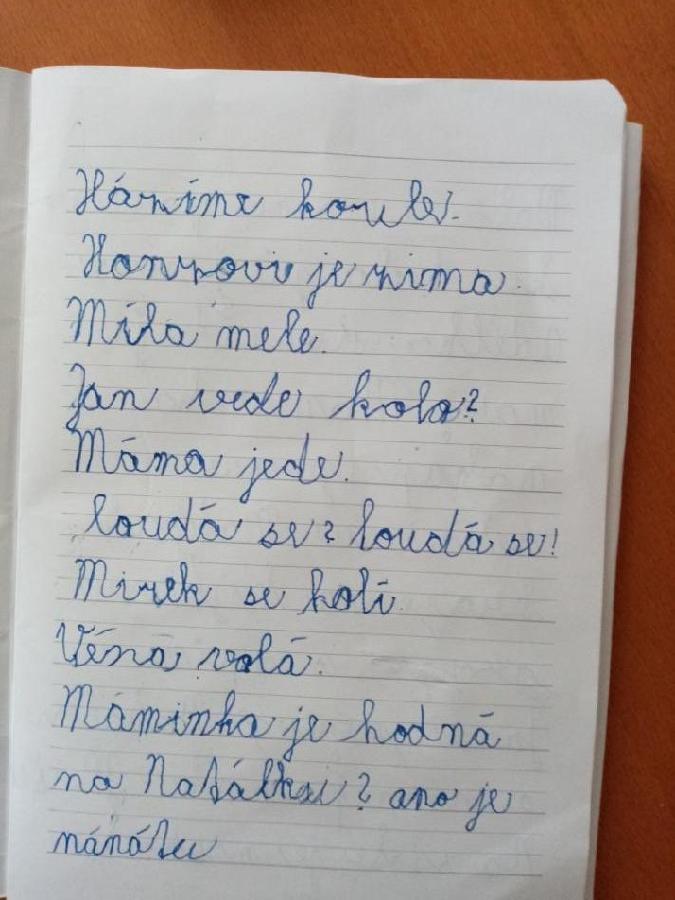 Házíme koule.
Honzovi je zima.
Míla mele.
Jan vede kolo?
Máma jede.
loudá se? loudá se!
Mirek se holí.
Věna volá.
Máminka je hodná
na Natálku? ano je